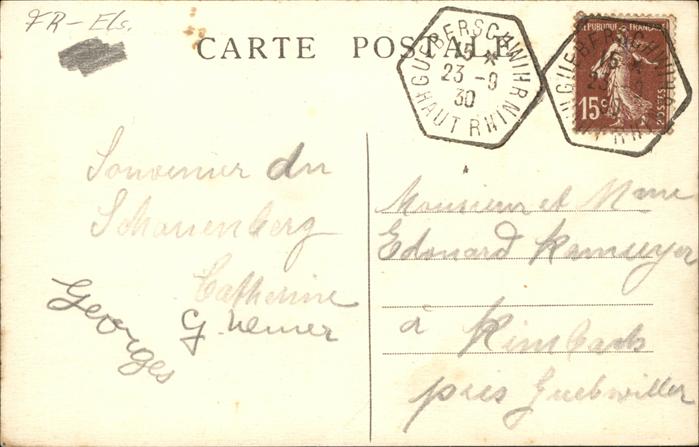 FR-Els.
CARTE POSTALE
GUEBERSCHWIHR
15 *
23-9
30
HAUT RHIN
15c
POSTES
Souvenir du
Schauenberg
Catherine
Georges
Monsieur et Mme
Edouard
à Rimbach
près Guebwiller